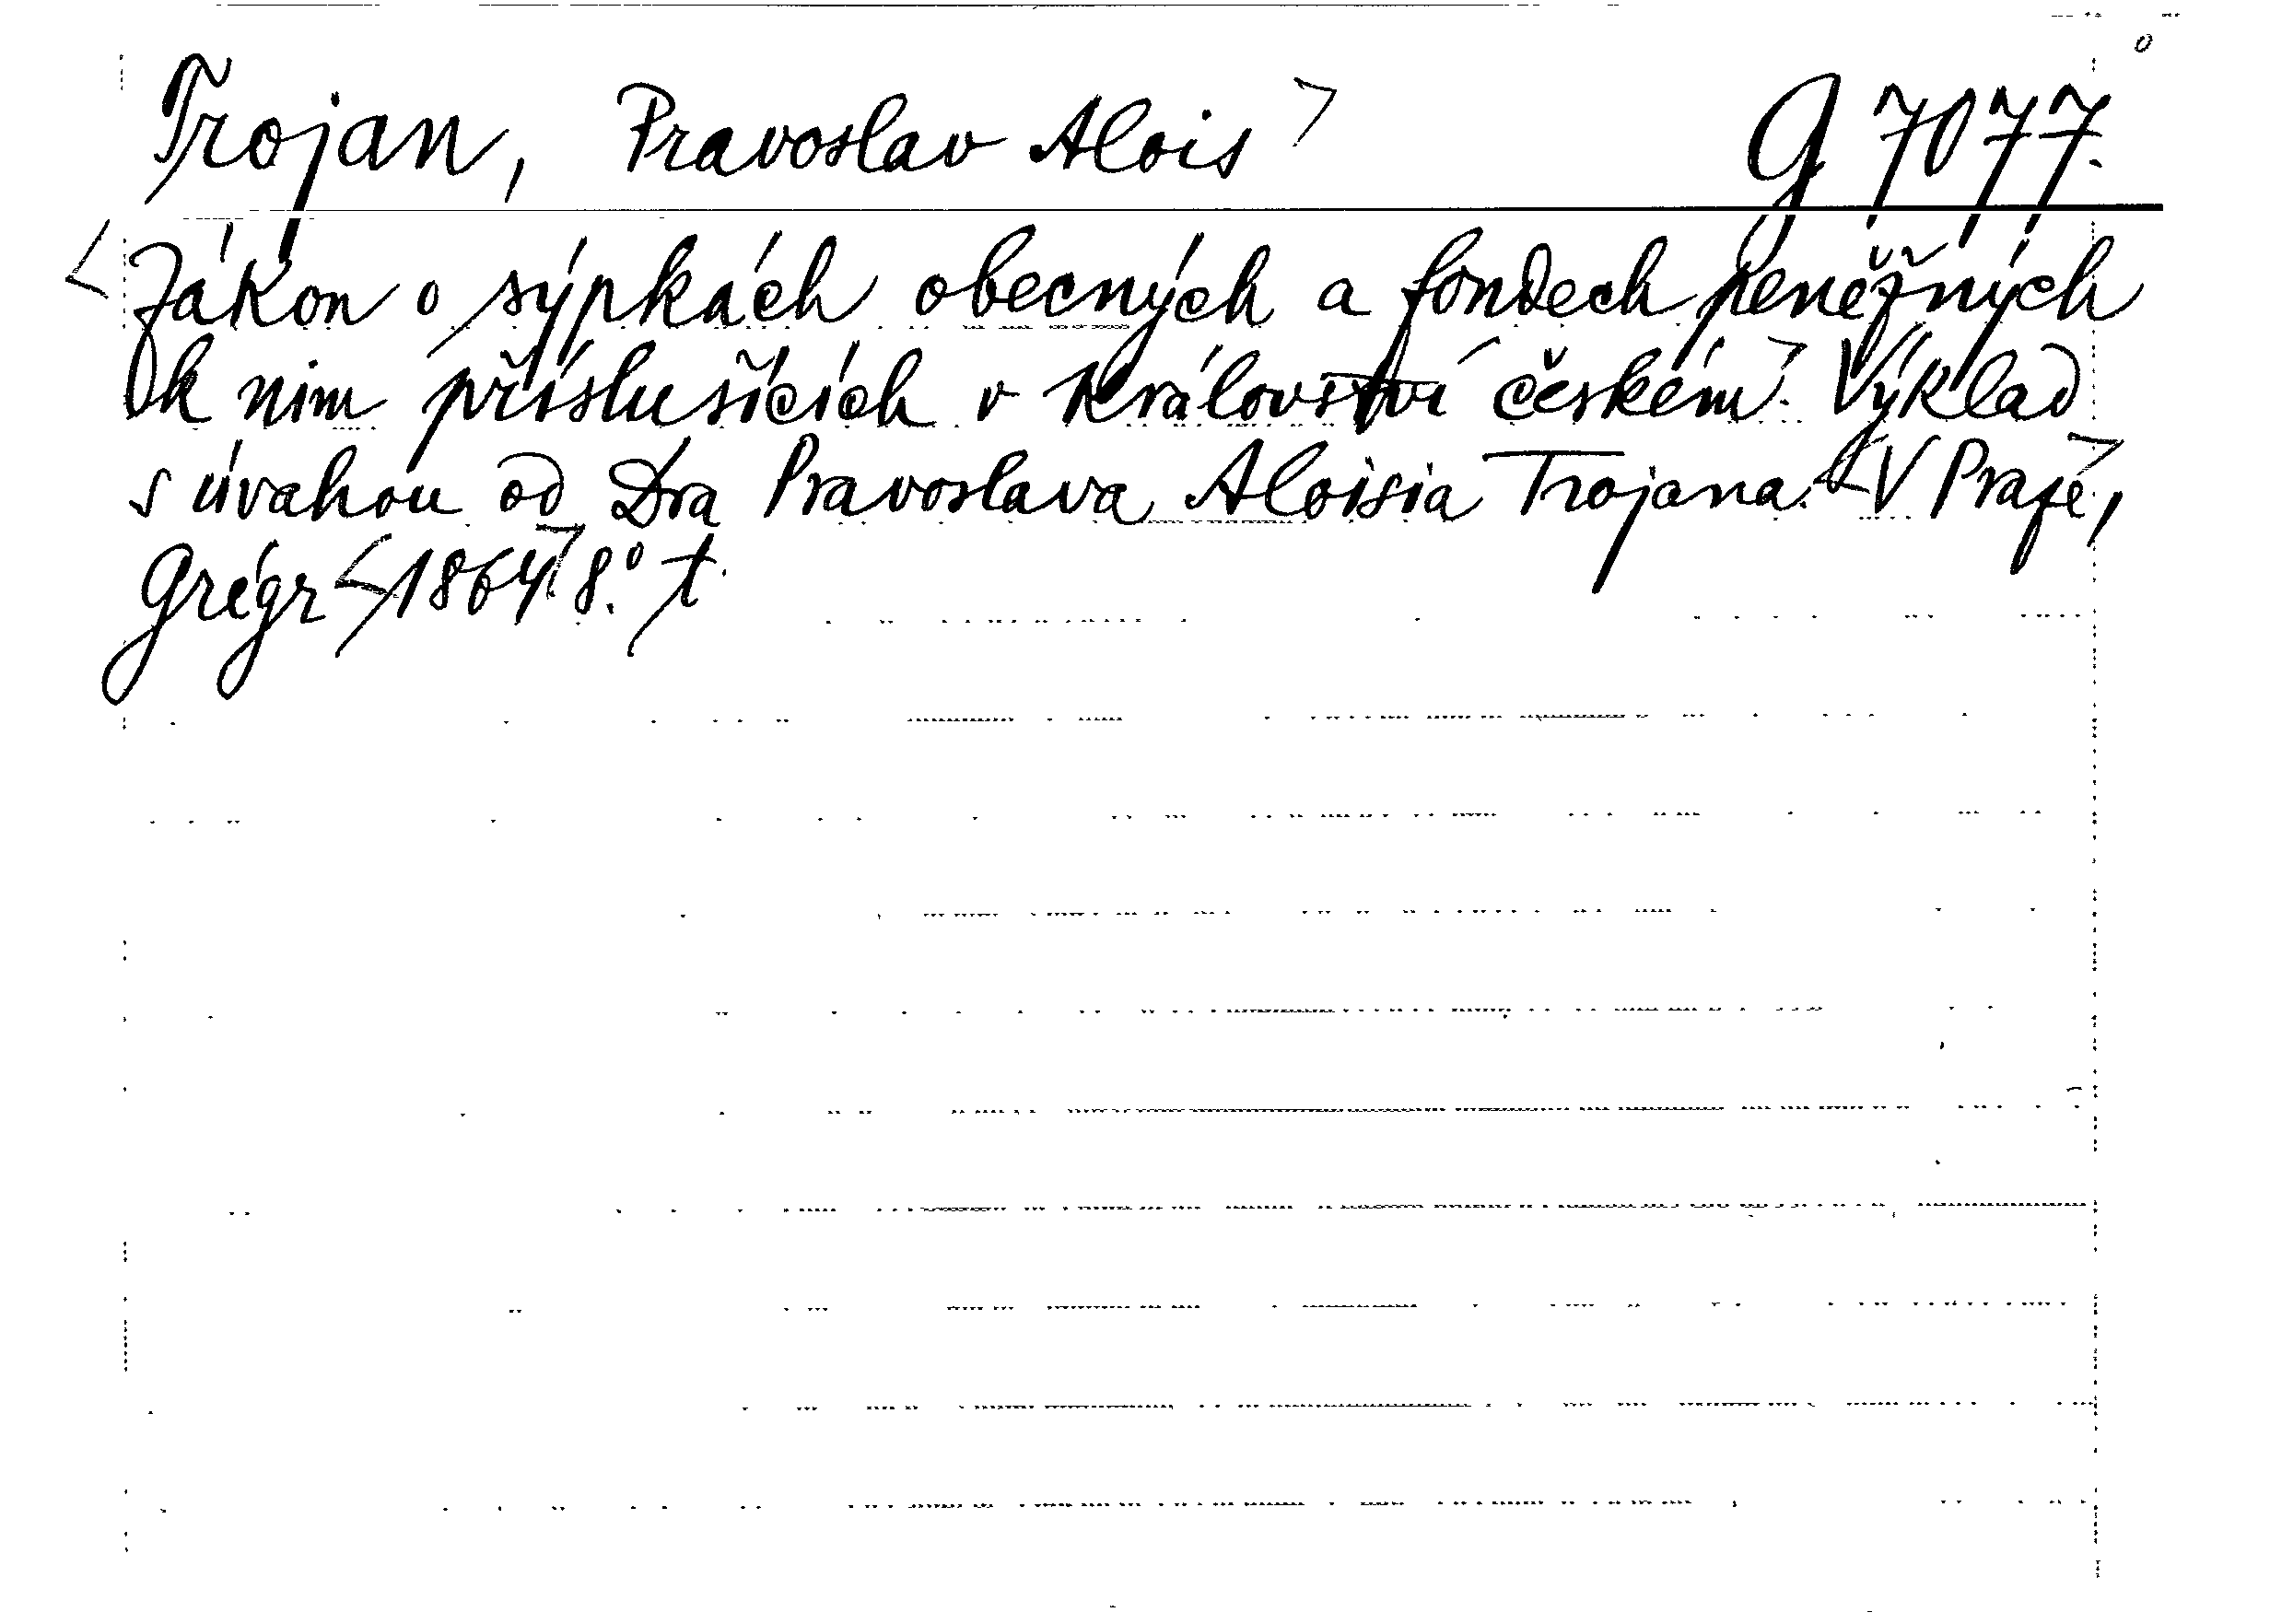 Trojan, Pravoslav Alois> G 7077.
<Zákon o sýpkách obecných a fondech peněžných
k nim příslušících v Království českém.> Výklad
s úvahou od Dra Pravoslava Aloisia Trojana. <V Praze>,
Grégr <1864> 8.° t.